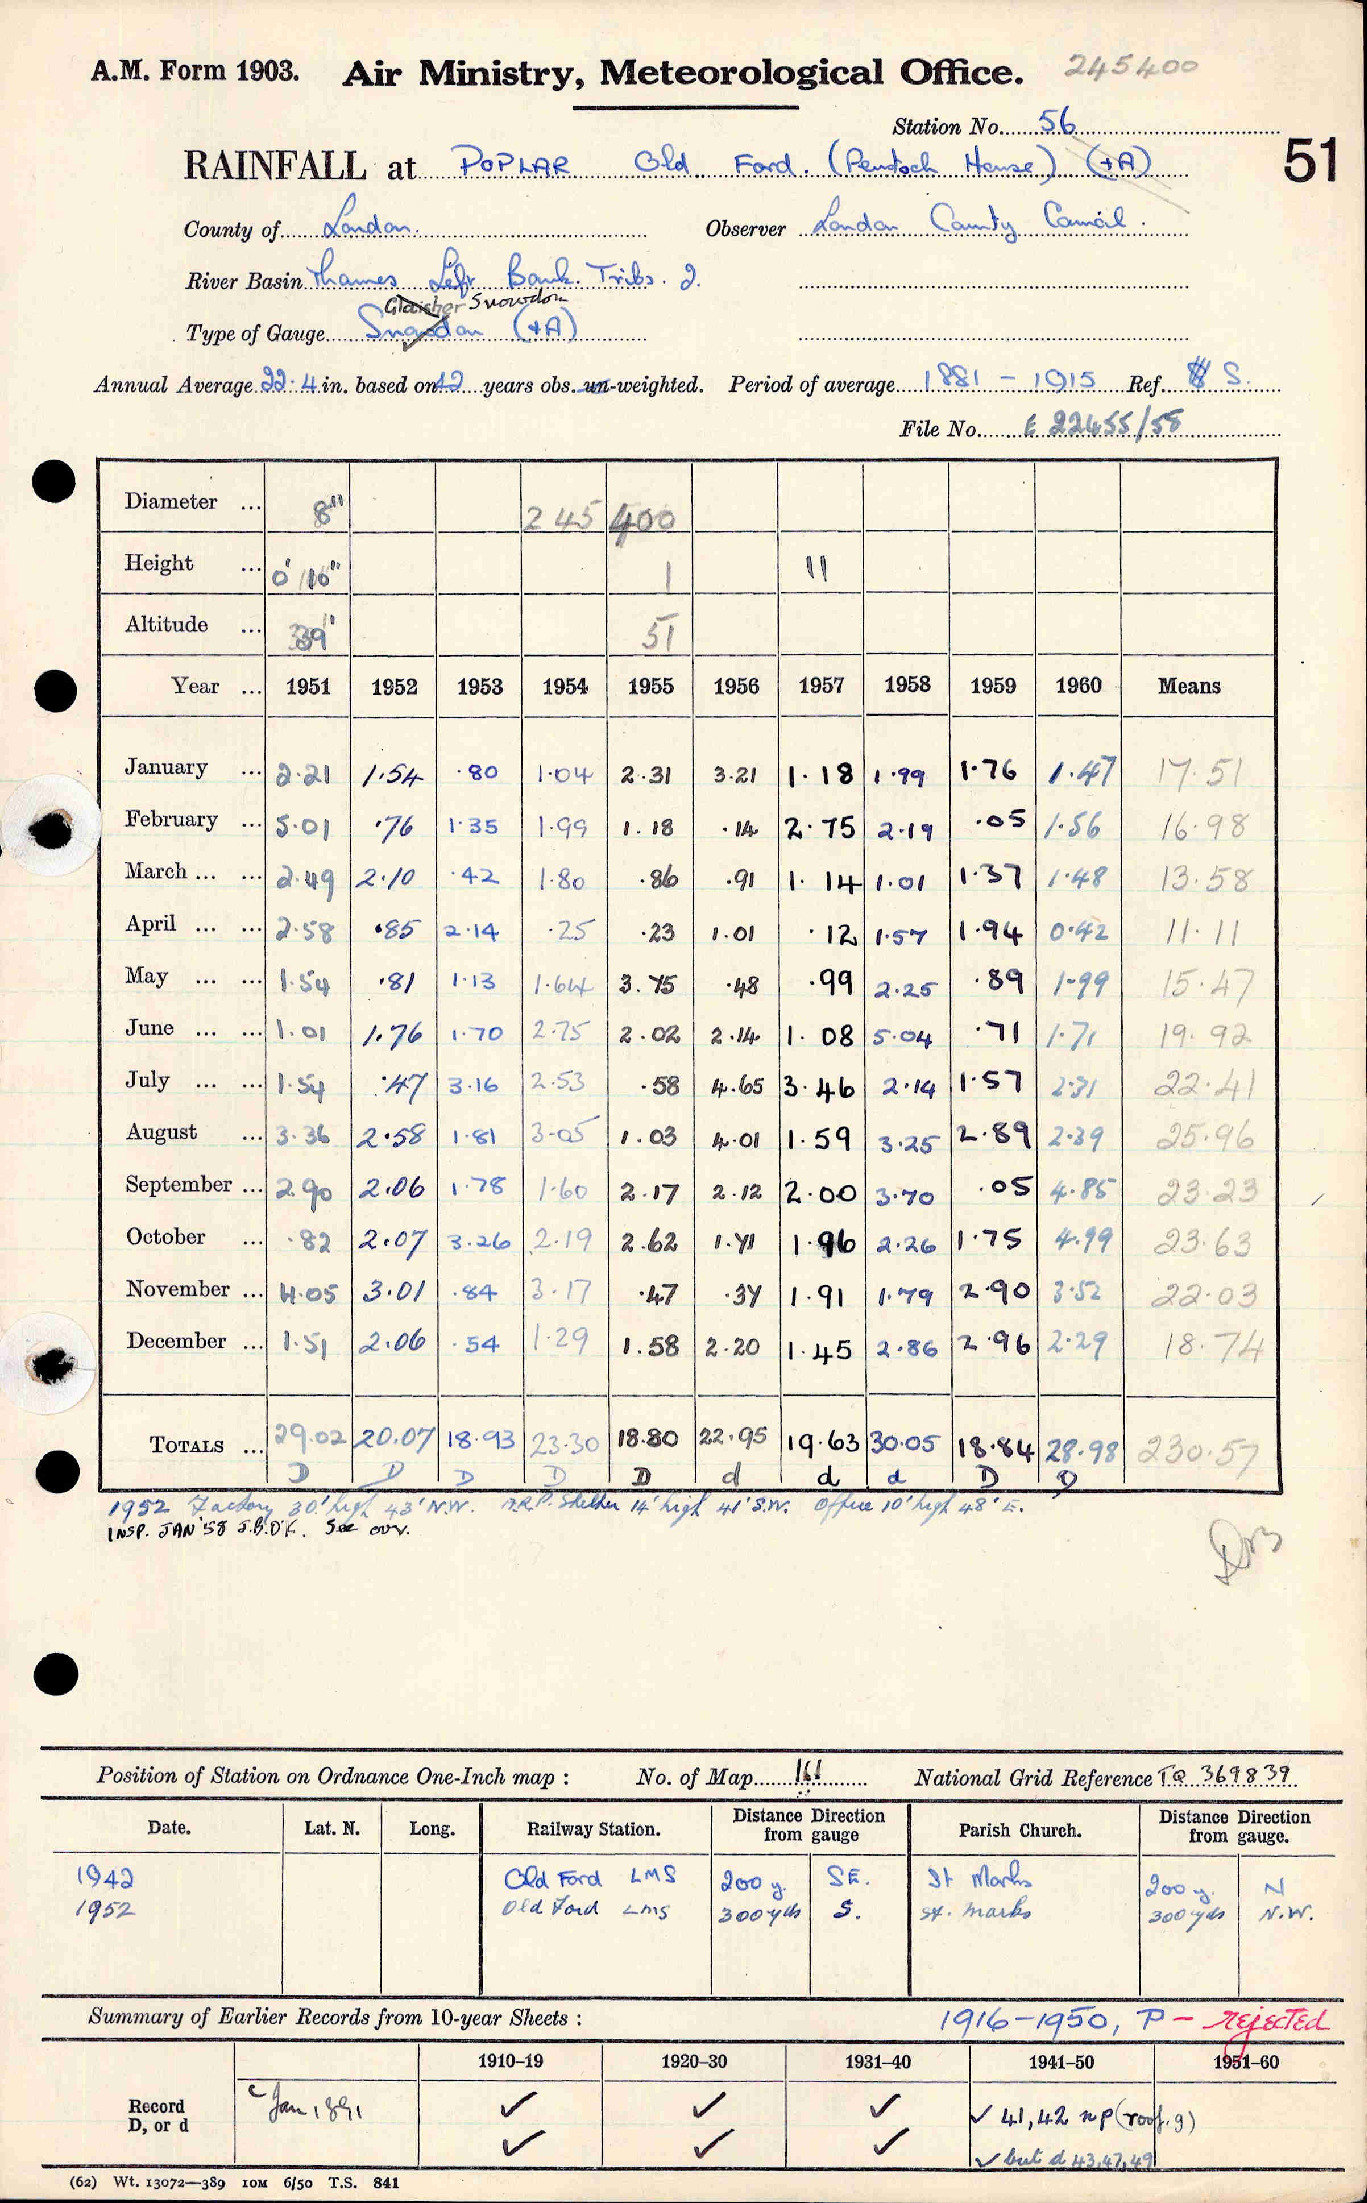 A.M. Form 1903. Air Ministry, Meteorological Office. 245400
Station No. 56
51
RAINFALL at POPLAR Old Ford. (House) (+A)
County of London. Observer London County Council.
River Basin Thames Left Bank. Tribs. 2.
Glaisher Snowdon
Type of Gauge Snowdon (+A)
Annual Average 22.4 in. based on 12 years obs. un-weighted. Period of average 1881 - 1915 Ref. S.
File No. E 22455/58
Diameter ... 8" 245 400
Height ... 0' 10" 1 11
Altitude ... 39" 51
Year ... 1951 1952 1953 1954 1955 1956 1957 1958 1959 1960 Means
January ... 2.21 1.54 .80 1.04 2.31 3.21 1.18 1.99 1.76 1.47 17.51
February ... 5.01 .76 1.35 1.99 1.18 .14 2.75 2.19 .05 1.56 16.98
March ... ... 2.49 2.10 .42 1.80 .86 .91 1.14 1.01 1.37 1.48 13.58
April ... ... 2.58 .85 2.14 .25 .23 1.01 .12 1.57 1.94 0.42 11.11
May ... ... 1.54 .81 1.13 1.64 3.75 .48 .99 2.25 .89 1.99 15.47
June ... ... 1.01 1.76 1.70 2.75 2.02 2.14 1.08 5.04 .71 1.71 19.92
July ... ... 1.54 .47 3.16 2.53 .58 4.65 3.46 2.14 1.57 2.31 22.41
August ... 3.36 2.58 1.81 3.05 1.03 4.01 1.59 3.25 2.89 2.39 25.96
September ... 2.90 2.06 1.78 1.60 2.17 2.12 2.00 3.70 .05 4.85 23.23
October ... .82 2.07 3.26 2.19 2.62 1.71 1.96 2.26 1.75 4.99 23.63
November ... 4.05 3.01 .84 3.17 .47 .37 1.91 1.79 2.90 3.52 22.03
December ... 1.51 2.06 .54 1.29 1.58 2.20 1.45 2.86 2.96 2.29 18.74
TOTALS ... 29.02 20.07 18.93 23.30 18.80 22.95 19.63 30.05 18.84 28.98 230.57
D D D D D d d d D D
1952 Factory 30' high 43' N.W. A.R.P. Shelter 14' high 41' S.W. Office 10' high 48' E.
INSP. JAN '58 See over.
Position of Station on Ordnance One-Inch map : No. of Map 161 National Grid Reference TQ 369839
Date. Lat. N. Long. Railway Station. Distance from Direction gauge Parish Church. Distance from Direction gauge.
1942 Old Ford LMS 200 y. SE. St Marks 200 y. N
1952 Old Ford LMS 300 yds S. St. Marks 300 yds N.W.
Summary of Earlier Records from 10-year Sheets : 1916-1950, P - rejected
1910-19 1920-30 1931-40 1941-50 1951-60
Record D, or d
Jan 1891 ✓ ✓ ✓ ✓ 41, 42 n p (roof. g)
✓ ✓ ✓ ✓ but d 43,47,49
(62) Wt. 13072—389 10M 6/50 T.S. 841